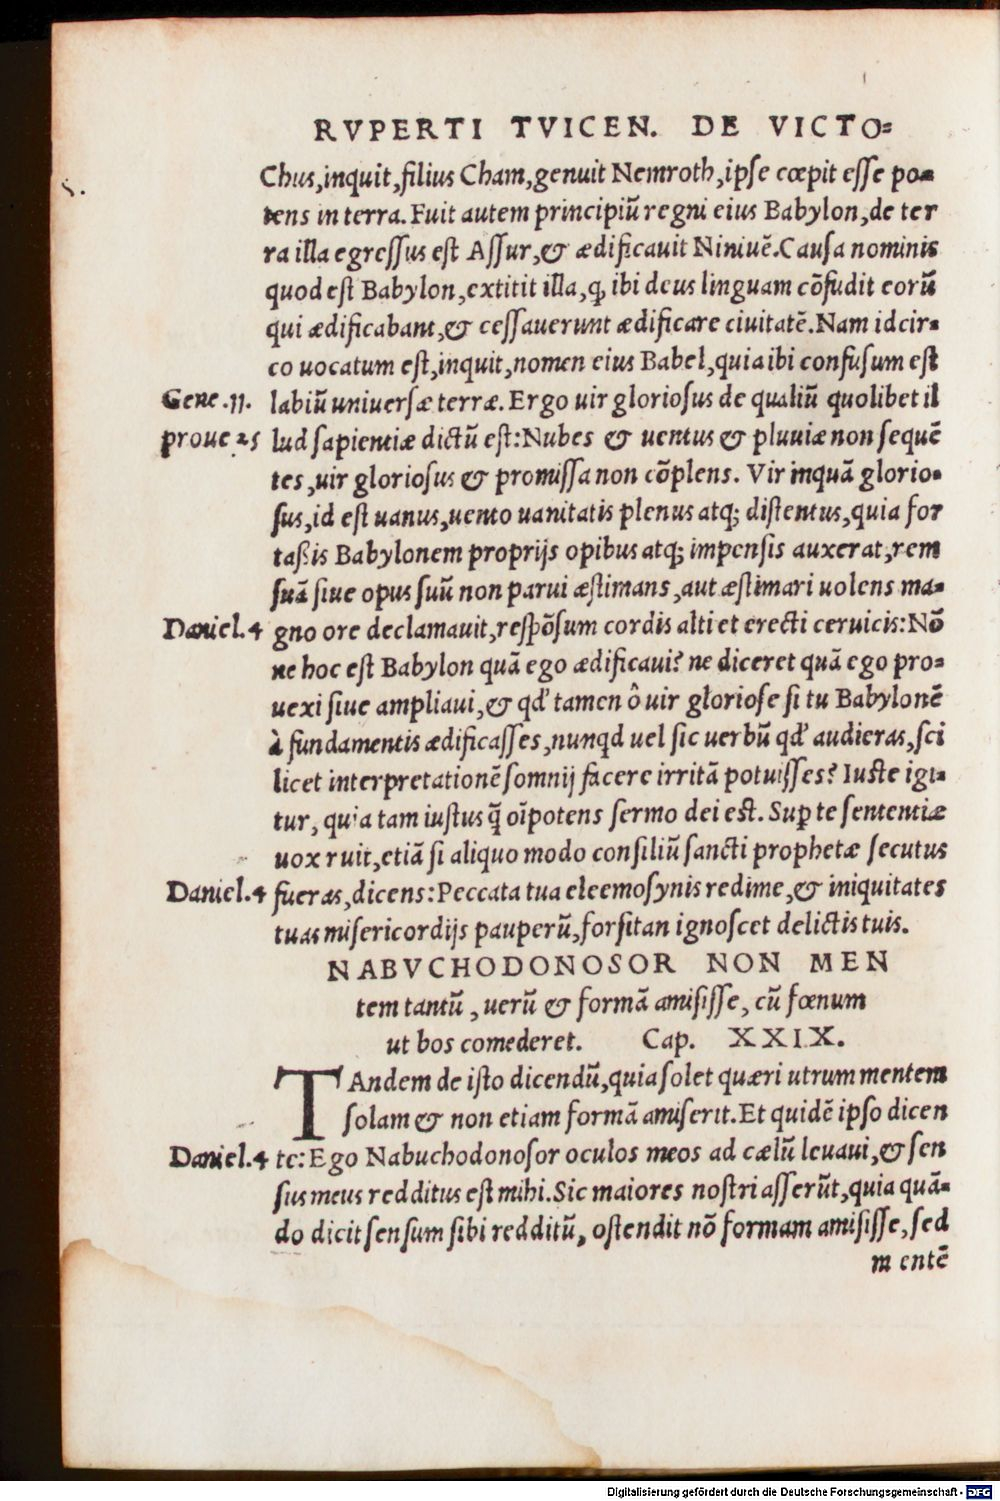 RVPERTI TVICEN. DE VICTO⸗
Chus,inquit,filius Cham,genuit Nemroth,ipse cœpit esse po⸗
tens in terra.Fuit autem principiũ regni eius Babylon,de ter
ra illa egressus est Assur,& ædificauit Niniuẽ.Causa nominis
quod est Babylon,extitit illa,q̨ ibi deus linguam cõfudit eorũ
qui ædificabant,& cessauerunt ædificare ciuitatẽ.Nam idcir⸗
co uocatum est,inquit,nomen eius Babel,quia ibi confusum est
Gene.11. labiũ uniuersæ terræ.Ergo uir gloriosus de qualiũ quolibet il
proue 25 lud sapientiæ dictũ est:Nubes & uentus & pluuiæ non sequẽ
tes,uir gloriosus & promissa non cõplens. Vir inquã glorio⸗
sus,id est uanus,uento uanitatis plenus atq; distentus,quia for
taßis Babylonem proprijs opibus atq; impensis auxerat,rem
suã siue opus suũ non parui æstimans,aut æstimari uolens ma⸗
Daniel.4 gno ore declamauit,respõsum cordis alti et erecti ceruicis:Nõ
ne hoc est Babylon quã ego ædificaui? ne diceret quã ego pro⸗
uexi siue ampliaui,& qď tamen ô uir gloriose si tu Babylonẽ
à fundamentis ædificasses,nunqd uel sic uerbũ qď audieras,sci
licet interpretationẽ somnij facere irritã potuisses? Iuste igi⸗
tur, quia tam iustus q̃ oĩpotens sermo dei est. Suꝑ te sententiæ
uox ruit,etiã si aliquo modo consiliũ sancti prophetæ secutus
Daniel.4 fueras,dicens:Peccata tua eleemosynis redime,& iniquitates
tuas misericordijs pauperũ,forsitan ignoscet delictis tuis.
NABVCHODONOSOR NON MEN
tem tantũ, uerũ & formã amisisse, cũ fœnum
ut bos comederet. Cap. XXIX.
TAndem de isto dicendũ,quia solet quæri utrum mentem
solam & non etiam formã amiserit.Et quidẽ ipso dicen
Daniel.4 te:Ego Nabuchodonosor oculos meos ad cælũ leuaui,& sen
sus meus redditus est mihi.Sic maiores nostri asserũt,quia quã⸗
do dicit sensum sibi redditũ, ostendit nõ formam amisisse, sed
mentẽ
Digitalisierung gefördert durch die Deutsche Forschungsgemeinschaft - DFG